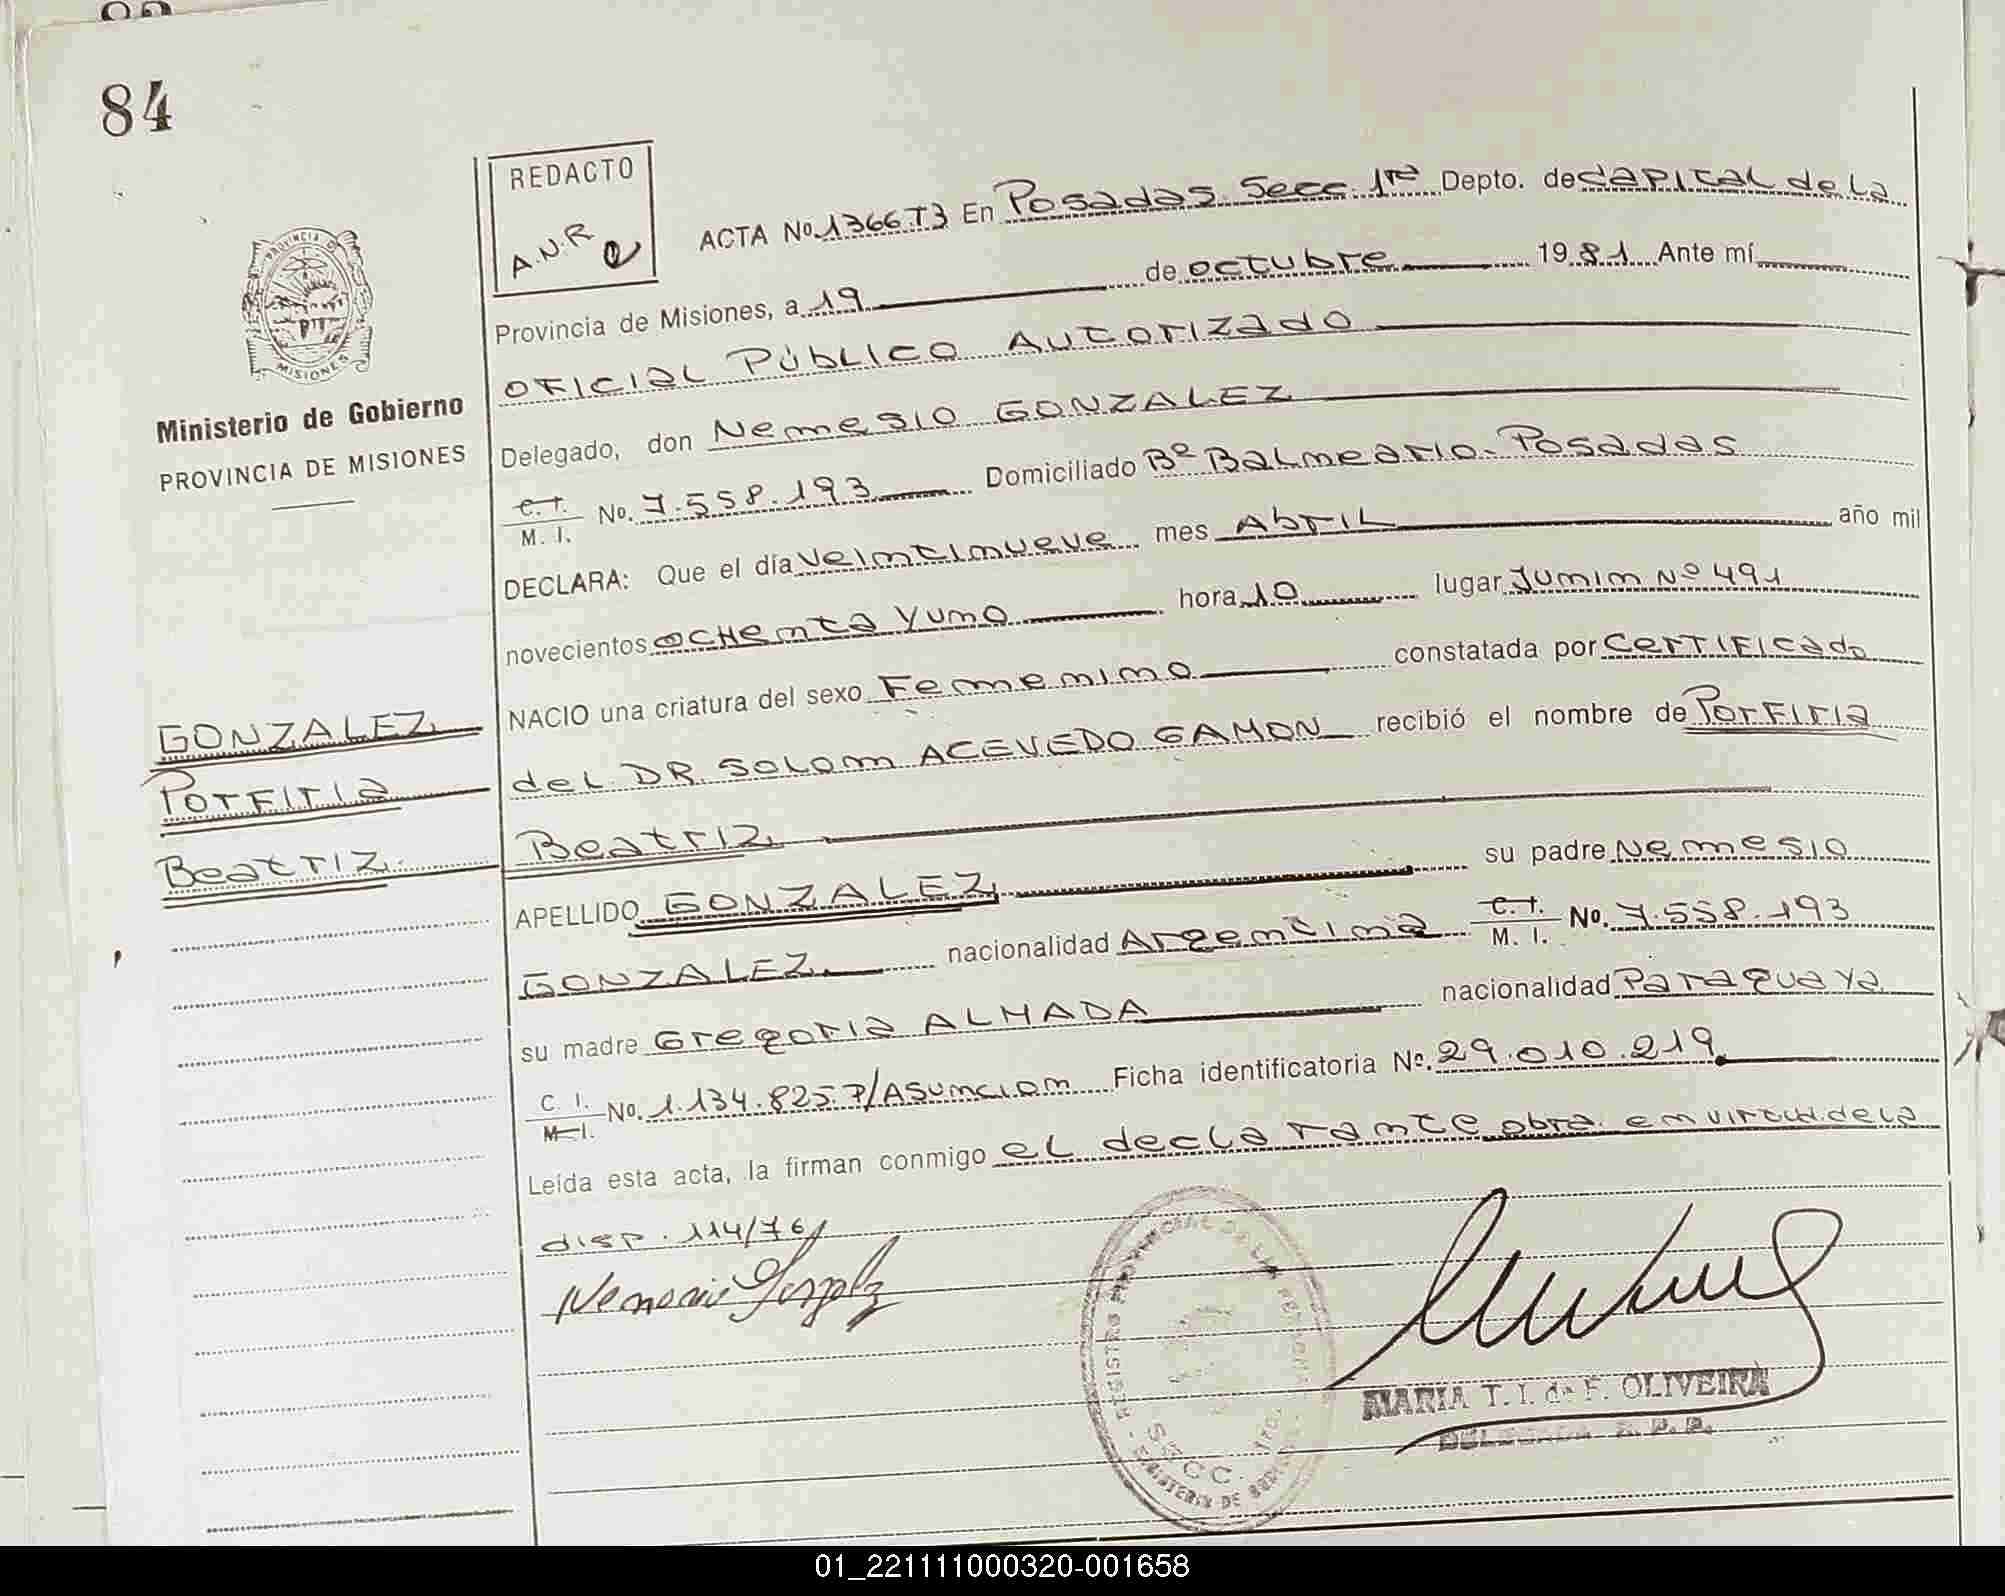 84
REDACTO
A.N.R
PROVINCIA DE
MISIONES
Ministerio de Gobierno
PROVINCIA DE MISIONES
GONZALEZ
Porfiria
Beatriz
ACTA No. 1366 T3 En Posadas Secc. 1ra Depto. de Capital de la
Provincia de Misiones, a 19 de octubre 1981 Ante mí
OFICIAL PÚBLICO AUTORIZADO
Delegado, don Nemesio GONZALEZ
C. I. M. I. No. 7.558.193 Domiciliado Bº Balneario-Posadas
DECLARA: Que el día veintinueve mes Abril año mil
novecientos ochenta y uno hora 10 lugar Junin Nº 491
NACIO una criatura del sexo Femenino constatada por Certificado
del DR. Solom ACEVEDO GAMON recibió el nombre de Porfiria
Beatriz
APELLIDO GONZALEZ su padre Nemesio
GONZALEZ nacionalidad Argentina C. I. M. I. No. 7.558.193
su madre Gregoria ALMADA nacionalidad Paraguaya
C. I. M. I. No. 1.134.825.P/Asuncion Ficha identificatoria Nº. 29.010.219
Leída esta acta, la firman conmigo el declarante obra en virtud de la
disp. 114/76
REGISTRO PROVINCIAL DE LAS PERSONAS
SECC. 1ra.
MARIA T. I. de F. OLIVEIRA
DELEGADA R. P. P.
01_221111000320-001658